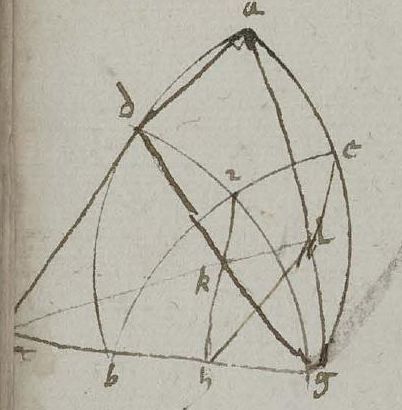 a
d
e
z
l
k
b
h
g